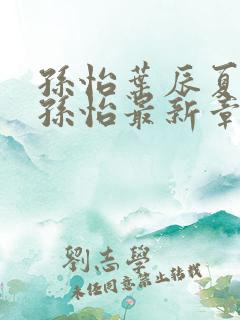 孫怡葉辰夏
孫怡最新章
劉志學
未经同意禁止转载